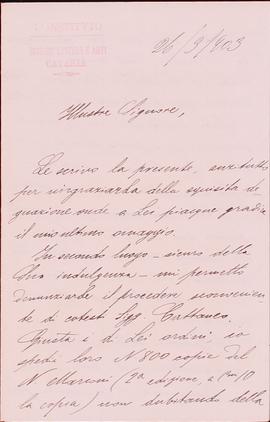 CATANIA
26/3/903
Illustre Signore,
Le scrivo la presente, anzitutto
per ringraziarla della squisita de
gnazione onde a Lei piacque gradire
il mio ultimo omaggio.
In secondo luogo – sicuro della
Sua indulgenza – mi permetto
denunziarle il procedere sconvenien
te di cotesti Sigg. Cattaneo.
Giusta e di Lei ordini, io
spedii loro N 800 copie del
N Marconi (2ª edizione, a 10
la copia) non dubitando della